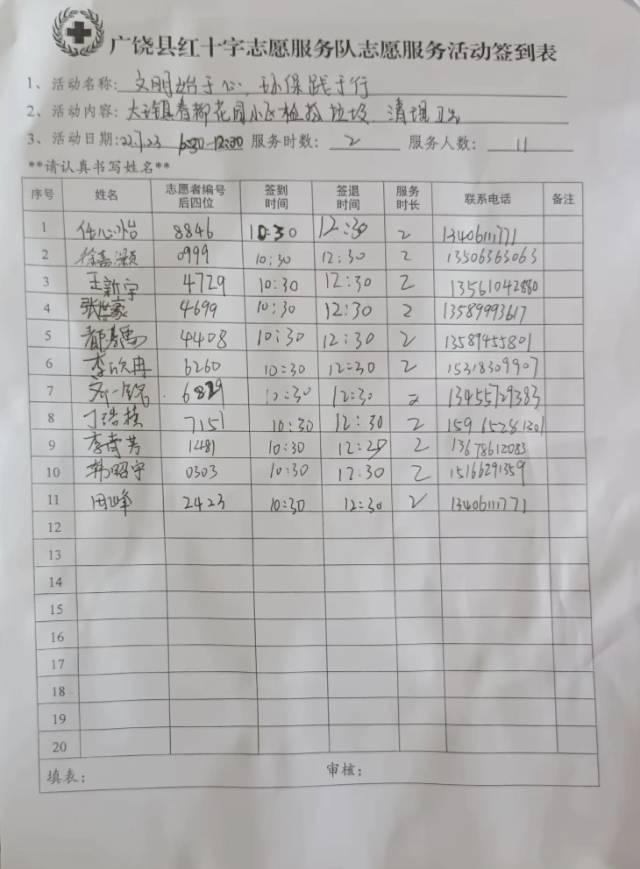 广饶县红十字志愿服务队志愿服务活动签到表
1、活动名称: 文明始于心,环保践于行
2、活动内容: 大王镇春柳花园小区捡拾垃圾 清理卫生
3、活动日期: 22.7.23 10:30-12:30 服务时数: 2 服务人数: 11
**请认真书写姓名**
序号 姓名 志愿者编号后四位 签到时间 签退时间 服务时长 联系电话 备注
1 任心怡 8846 10:30 12:30 2 13406111771
2 徐嘉灏 0999 10:30 12:30 2 13506363063
3 王新宇 4729 10:30 12:30 2 13561042880
4 张世豪 4699 10:30 12:30 2 13589993617
5 4408 10:30 12:30 2 13589455801
6 李欣冉 6260 10:30 12:30 2 15318309907
7 6829 10:30 12:30 2 13455729383
8 丁浩桢 7151 10:30 12:30 2
9 李雪芳 1481 10:30 12:29 2 13678612083
10 韩昭宁 0303 10:30 12:30 2 15166291359
11 田峰 2423 10:30 12:30 2 13406111771
12
13
14
15
16
17
18
19
20
填表: 审核: